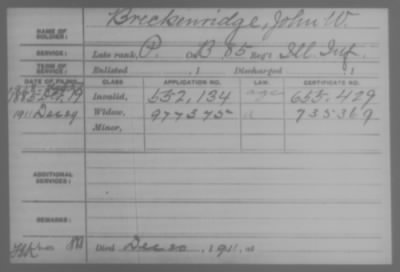 NAME OF SOLDIER: Breckenridge, John W.
SERVICE: Late rank, P. Co. B 85 Reg't Ill. Inf.
TERM OF SERVICE: Enlisted , 1 Discharged , 1
DATE OF FILING. CLASS. APPLICATION NO. LAW. CERTIFICATE NO.
Invalid, 532,134 655.429
1911 Dec 29 Widow, 977375 735367
Minor,
ADDITIONAL SERVICES:
REMARKS:
Died Dec 20, 1911, at